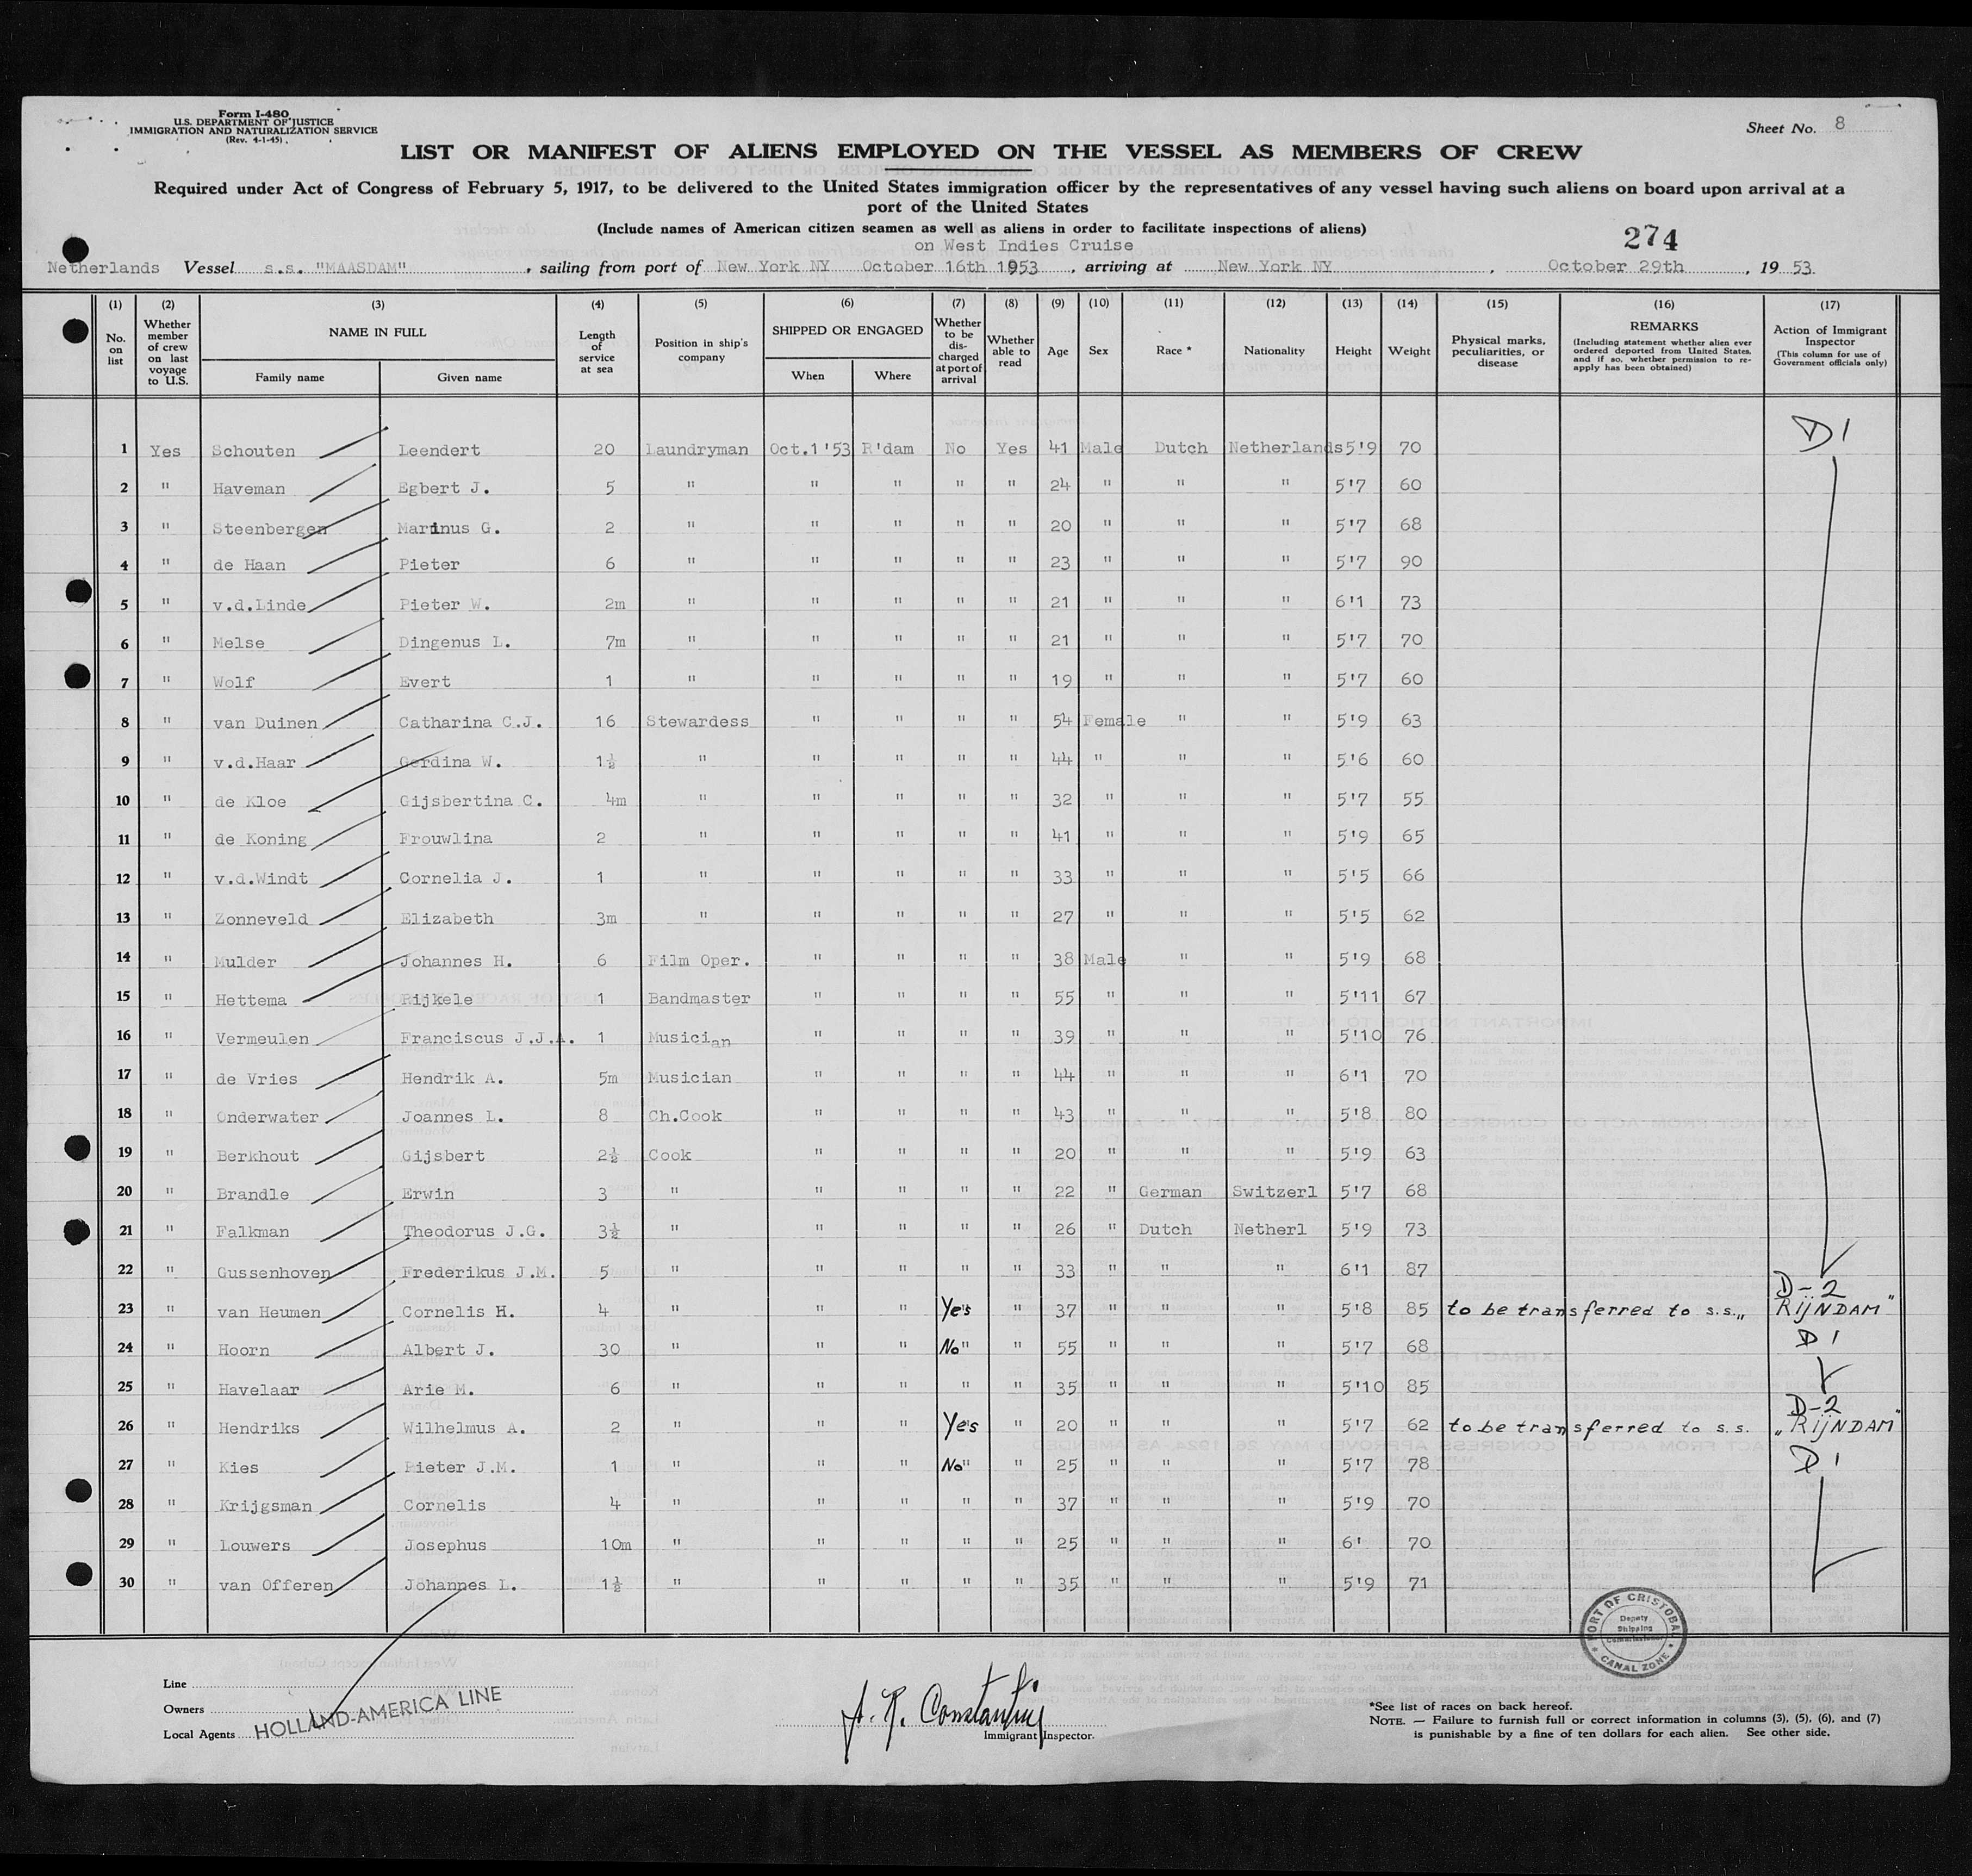 Form I-480
U.S. DEPARTMENT OF JUSTICE
IMMIGRATION AND NATURALIZATION SERVICE
(Rev. 4-1-45)
Sheet No. 8
LIST OR MANIFEST OF ALIENS EMPLOYED ON THE VESSEL AS MEMBERS OF CREW
Required under Act of Congress of February 5, 1917, to be delivered to the United States immigration officer by the representatives of any vessel having such aliens on board upon arrival at a
port of the United States
(Include names of American citizen seamen as well as aliens in order to facilitate inspections of aliens)
274
on West Indies Cruise
Netherlands Vessel s.s. "MAASDAM", sailing from port of New York NY October 16th 1953, arriving at New York NY, October 29th, 19 53.
(1) (2) (3) (4) (5) (6) (7) (8) (9) (10) (11) (12) (13) (14) (15) (16) (17)
No. on list Whether member of crew on last voyage to U.S. NAME IN FULL Family name Given name Length of service at sea Position in ship's company SHIPPED OR ENGAGED When Where Whether to be discharged at port of arrival Whether able to read Age Sex Race * Nationality Height Weight Physical marks, peculiarities, or disease REMARKS (Including statement whether alien ever ordered deported from United States, and if so, whether permission to re-apply has been obtained) Action of Immigrant Inspector (This column for use of Government officials only)
1 Yes Schouten Leendert 20 Laundryman Oct.1'53 R'dam No Yes 41 Male Dutch Netherlands 5'9 70 D1
2 " Haveman Egbert J. 5 " " " " " 24 " " " 5'7 60
3 " Steenbergen Marinus G. 2 " " " " " 20 " " " 5'7 68
4 " de Haan Pieter 6 " " " " " 23 " " " 5'7 90
5 " v.d.Linde Pieter W. 2m " " " " " 21 " " " 6'1 73
6 " Melse Dingenus L. 7m " " " " " 21 " " " 5'7 70
7 " Wolf Evert 1 " " " " " 19 " " " 5'7 60
8 " van Duinen Catharina C.J. 16 Stewardess " " " " 54 Female " " 5'9 63
9 " v.d.Haar Gerdina W. 1½ " " " " " 44 " " " 5'6 60
10 " de Kloe Gijsbertina C. 4m " " " " " 32 " " " 5'7 55
11 " de Koning Frouwlina 2 " " " " " 41 " " " 5'9 65
12 " v.d.Windt Cornelia J. 1 " " " " " 33 " " " 5'5 66
13 " Zonneveld Elizabeth 3m " " " " " 27 " " " 5'5 62
14 " Mulder Johannes H. 6 Film Oper. " " " " 38 Male " " 5'9 68
15 " Hettema Rijkele 1 Bandmaster " " " " 55 " " " 5'11 67
16 " Vermeulen Franciscus J.J.A. 1 Musician " " " " 39 " " " 5'10 76
17 " de Vries Hendrik A. 5m Musician " " " " 44 " " " 6'1 70
18 " Onderwater Joannes L. 8 Ch.Cook " " " " 43 " " " 5'8 80
19 " Berkhout Gijsbert 2½ Cook " " " " 20 " " " 5'9 63
20 " Brandle Erwin 3 " " " " " 22 " German Switzerl 5'7 68
21 " Falkman Theodorus J.G. 3½ " " " " " 26 " Dutch Netherl 5'9 73
22 " Gussenhoven Frederikus J.M. 5 " " " " " 33 " " " 6'1 87
23 " van Heumen Cornelis H. 4 " " " Yes " 37 " " " 5'8 85 to be transferred to s.s. „RIJNDAM" D-2
24 " Hoorn Albert J. 30 " " " No" " 55 " " " 5'7 68 D1
25 " Havelaar Arie M. 6 " " " " " 35 " " " 5'10 85
26 " Hendriks Wilhelmus A. 2 " " " Yes " 20 " " " 5'7 62 to be transferred to s.s. „RIJNDAM" D-2
27 " Kies Pieter J.M. 1 " " " No" " 25 " " " 5'7 78 D1
28 " Krijgsman Cornelis 4 " " " " " 37 " " " 5'9 70
29 " Louwers Josephus 10m " " " " " 25 " " " 6' 70
30 " van Offeren Johannes L. 1½ " " " " " 35 " " " 5'9 71
PORT OF CRISTOBAL
Deputy
Shipping
Commissioner
CANAL ZONE
Line
Owners
Local Agents HOLLAND-AMERICA LINE
Immigrant Inspector.
*See list of races on back hereof.
NOTE. — Failure to furnish full or correct information in columns (3), (5), (6), and (7)
is punishable by a fine of ten dollars for each alien. See other side.